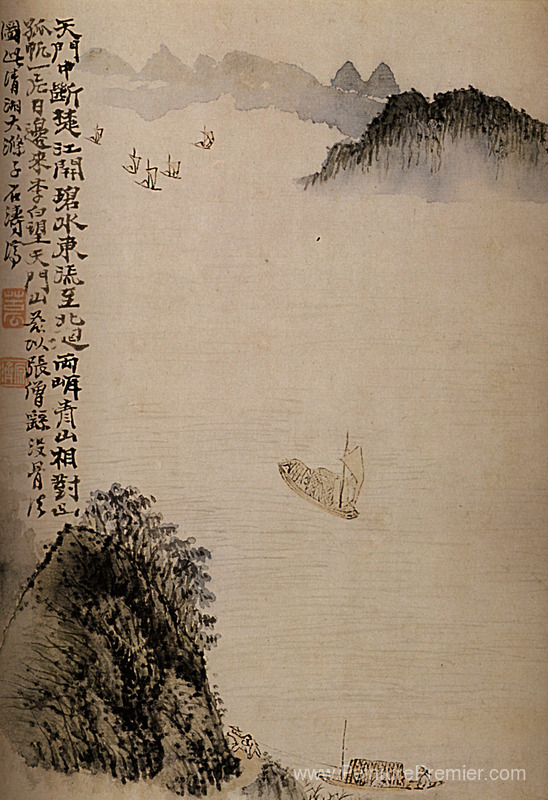 天門中斷楚江開碧水東流至北迴兩岸青山相對出
孤帆一片日邊來李白望天門山茲以張僧繇沒骨法
圖此清湘大滌子石濤
www.PeinturePremier.com